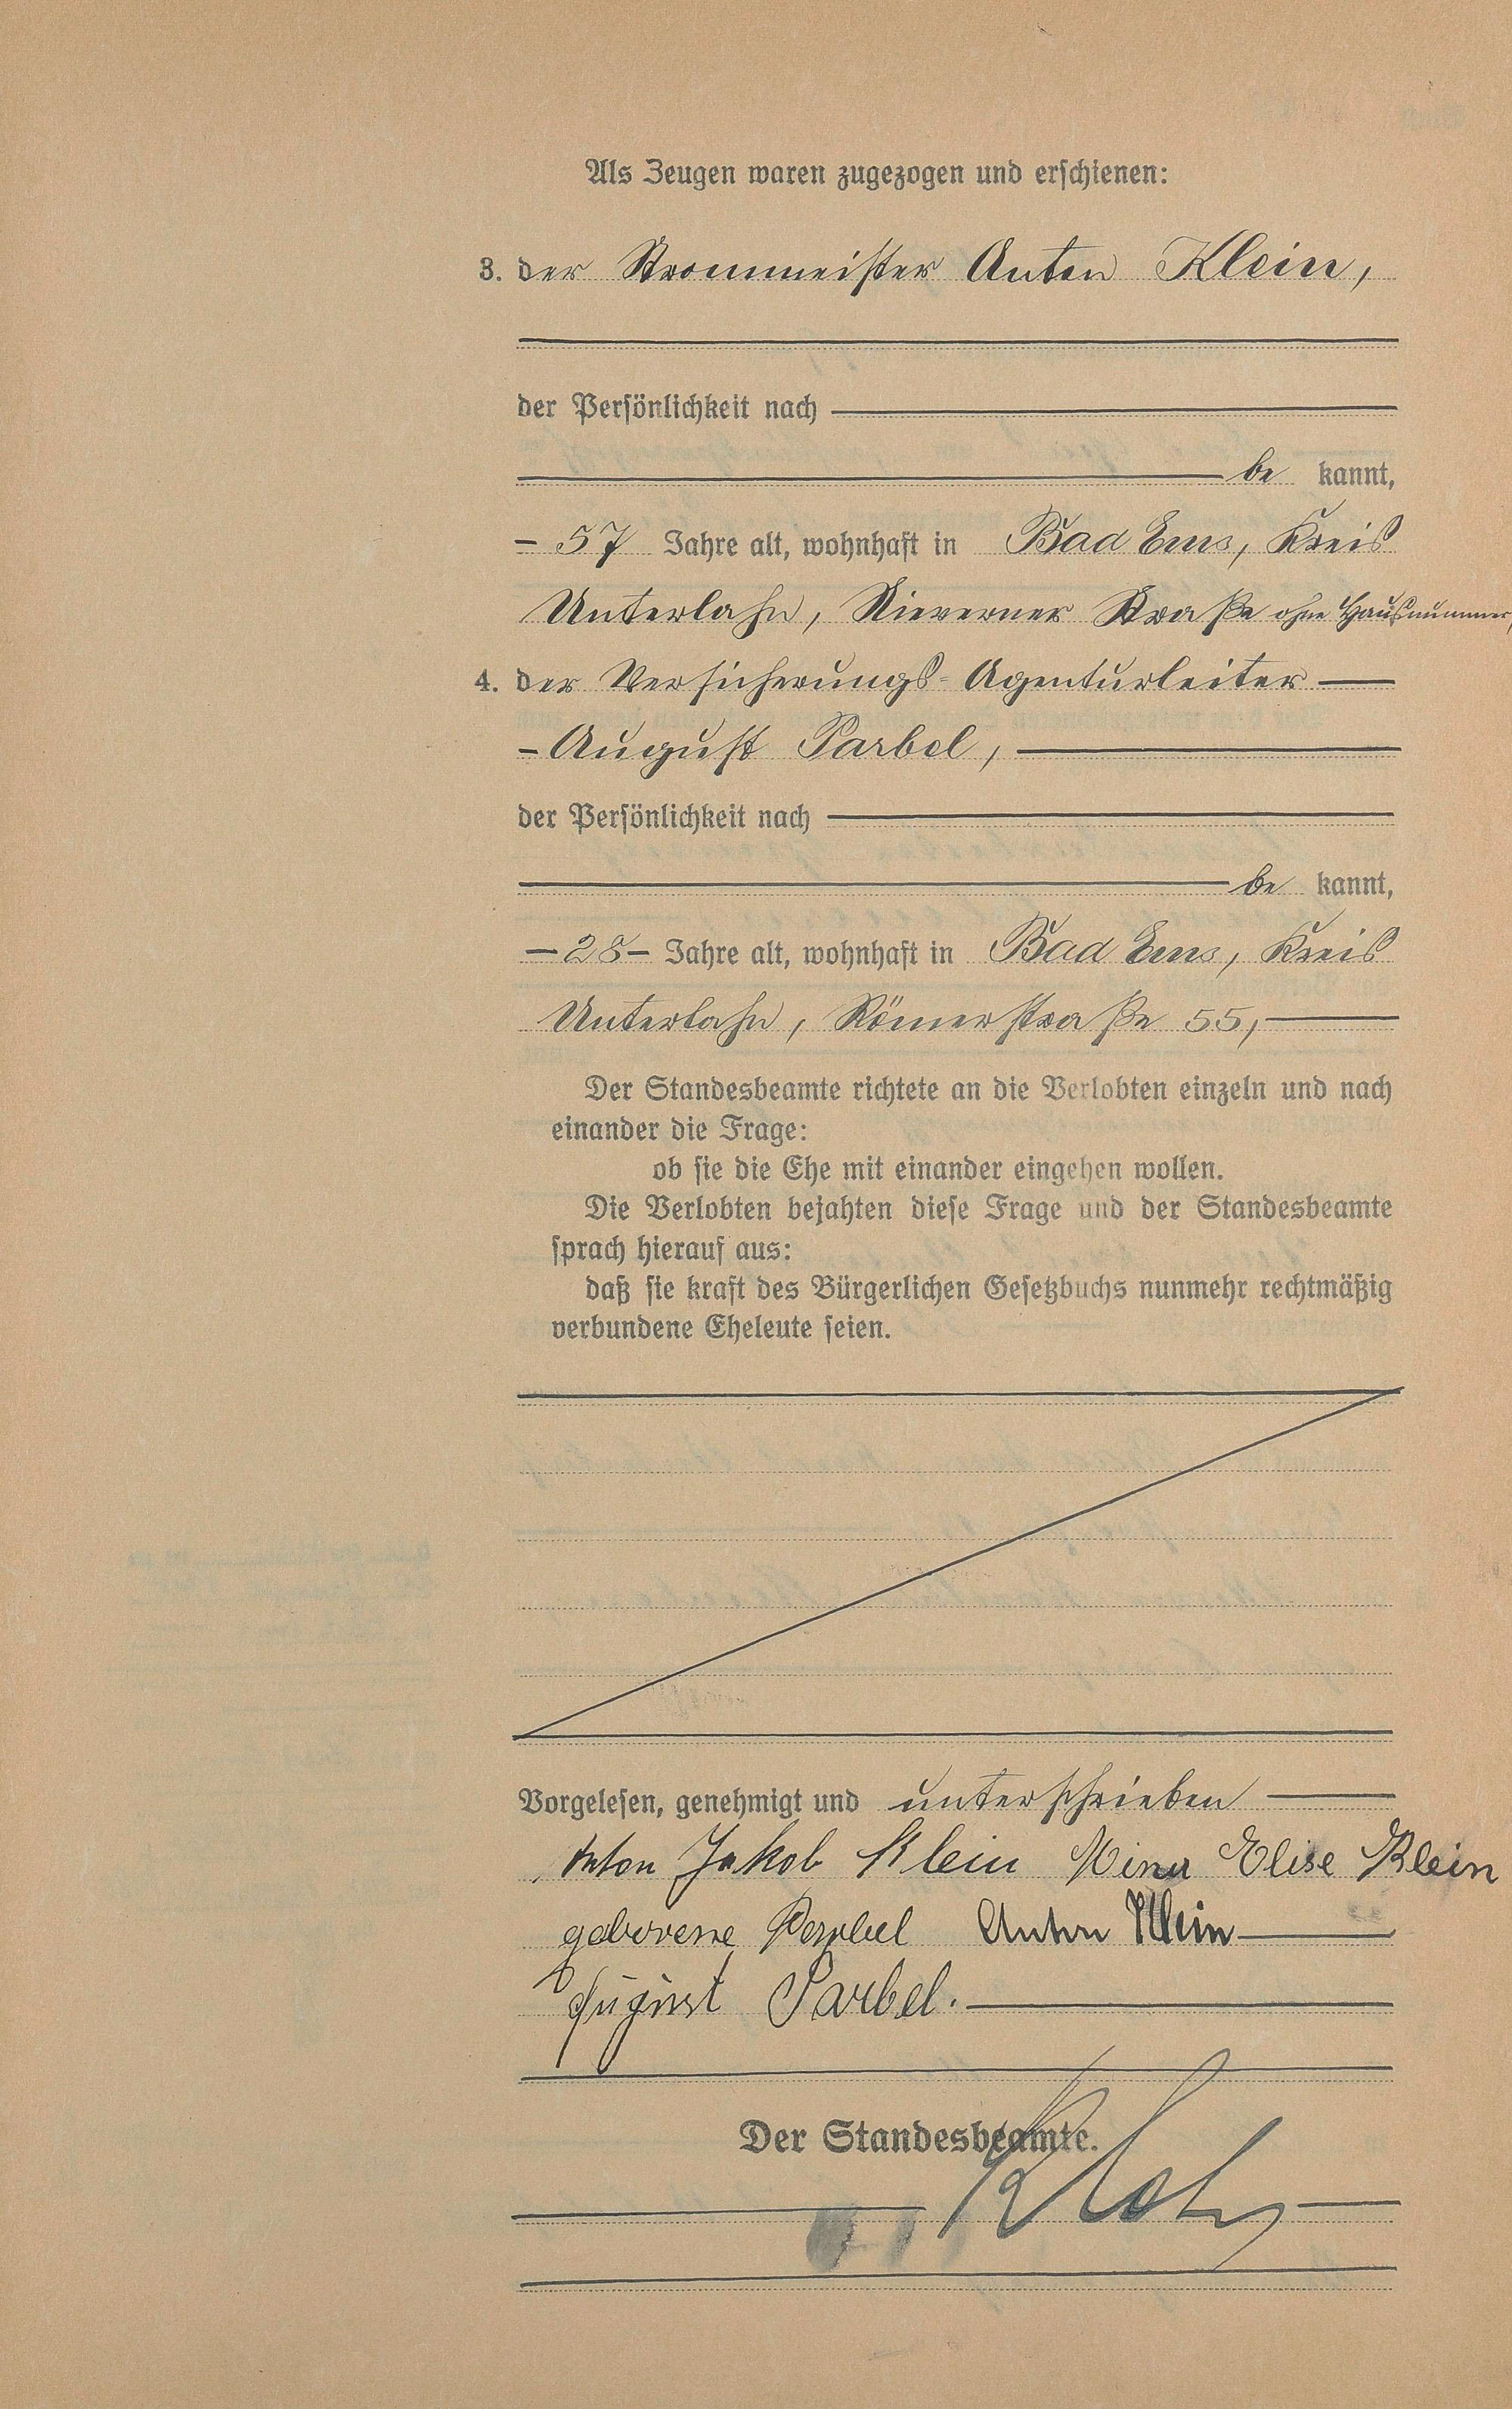 Als Zeugen waren zugezogen und erschienen:
3. der Strommeister Anton Klein,
der Persönlichkeit nach
be kannt,
– 57 Jahre alt, wohnhaft in Bad Ems, Kreis
Unterlahn, Nieverner Straße ohne Hausnummer,
4. der Versicherungs-Agenturleiter
– August Parbel,
der Persönlichkeit nach
be kannt,
– 28 – Jahre alt, wohnhaft in Bad Ems, Kreis
Unterlahn, Römerstraße 55,
Der Standesbeamte richtete an die Verlobten einzeln und nach
einander die Frage:
ob sie die Ehe mit einander eingehen wollen.
Die Verlobten bejahten diese Frage und der Standesbeamte
sprach hierauf aus:
daß sie kraft des Bürgerlichen Gesetzbuchs nunmehr rechtmäßig
verbundene Eheleute seien.
Vorgelesen, genehmigt und unterschrieben
Anton Jakob Klein Mina Elise Klein
geborene Parbel Anton Klein
August Parbel.
Der Standesbeamte.